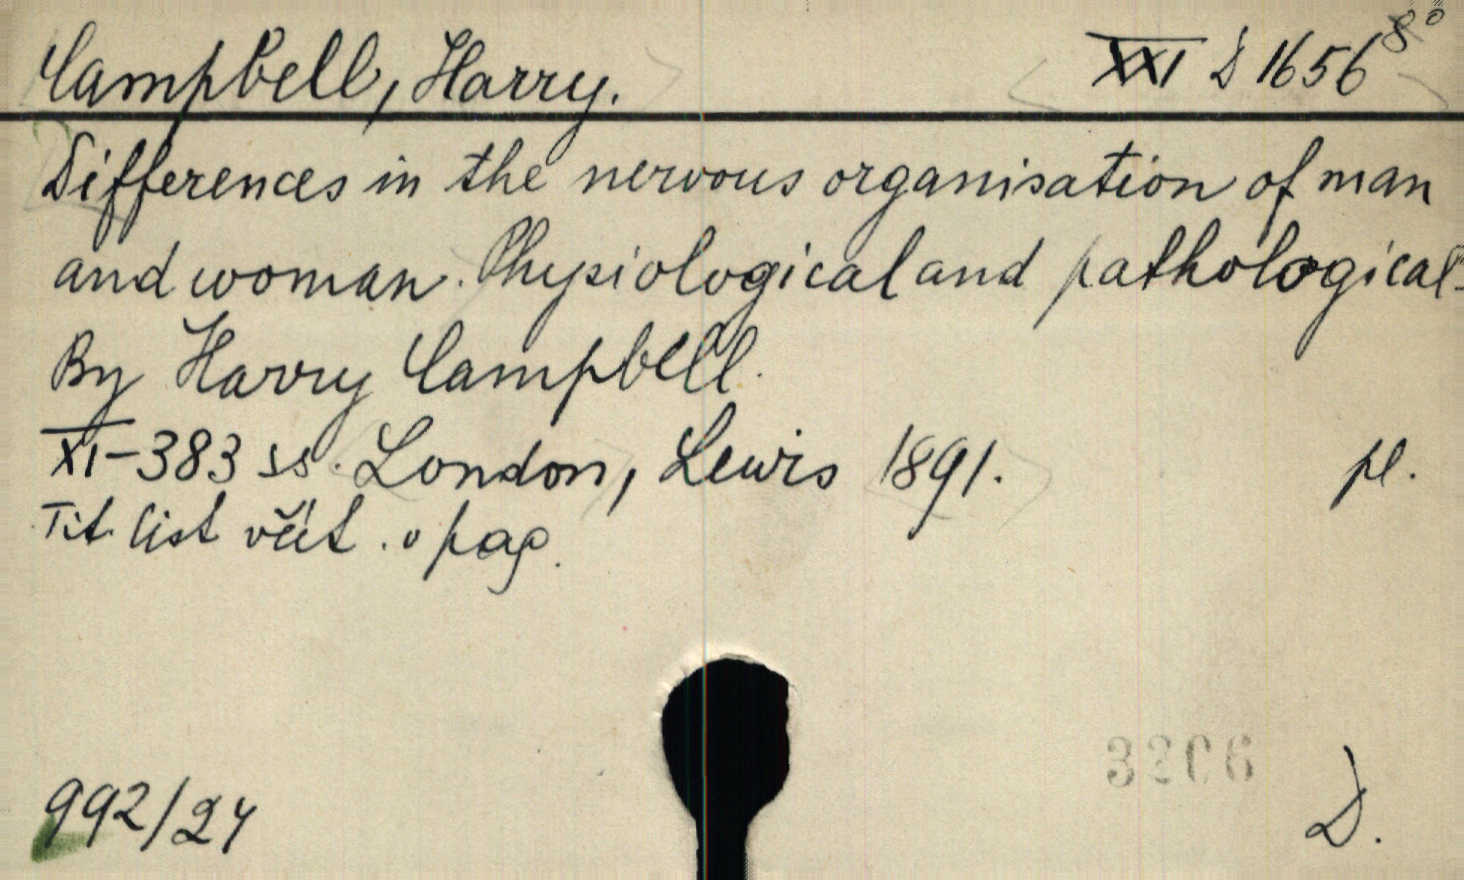 Campbell, Harry. XXI D 1656 8°
Differences in the nervous organisation of man
and woman. Physiological and pathological.
By Harry Campbell.
XI-383 ss. London, Lewis 1891. pl.
Tit. list včít. v pag.
3206
992/24 D.